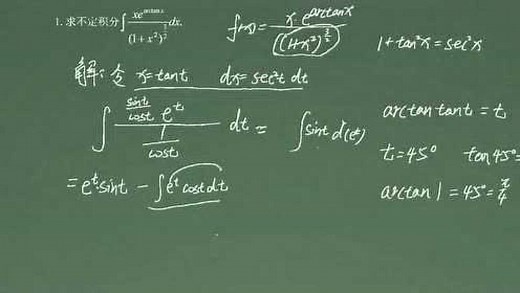 1. 求不定积分∫ xe^{arctanx} / (1+x²)^{3/2} dx.
f(x) = x e^{arctanx} / (1+x²)^{3/2}
1+tan²x=sec²x
解:令 x=tant dx=sec²t dt
∫ (sint/cost e^t) / (1/cost) dt = ∫ sint d(e^t)
arctan tant = t
t=45° tan45°=
= e^t sint - ∫ e^t cost dt
arctan1=45°=π/4